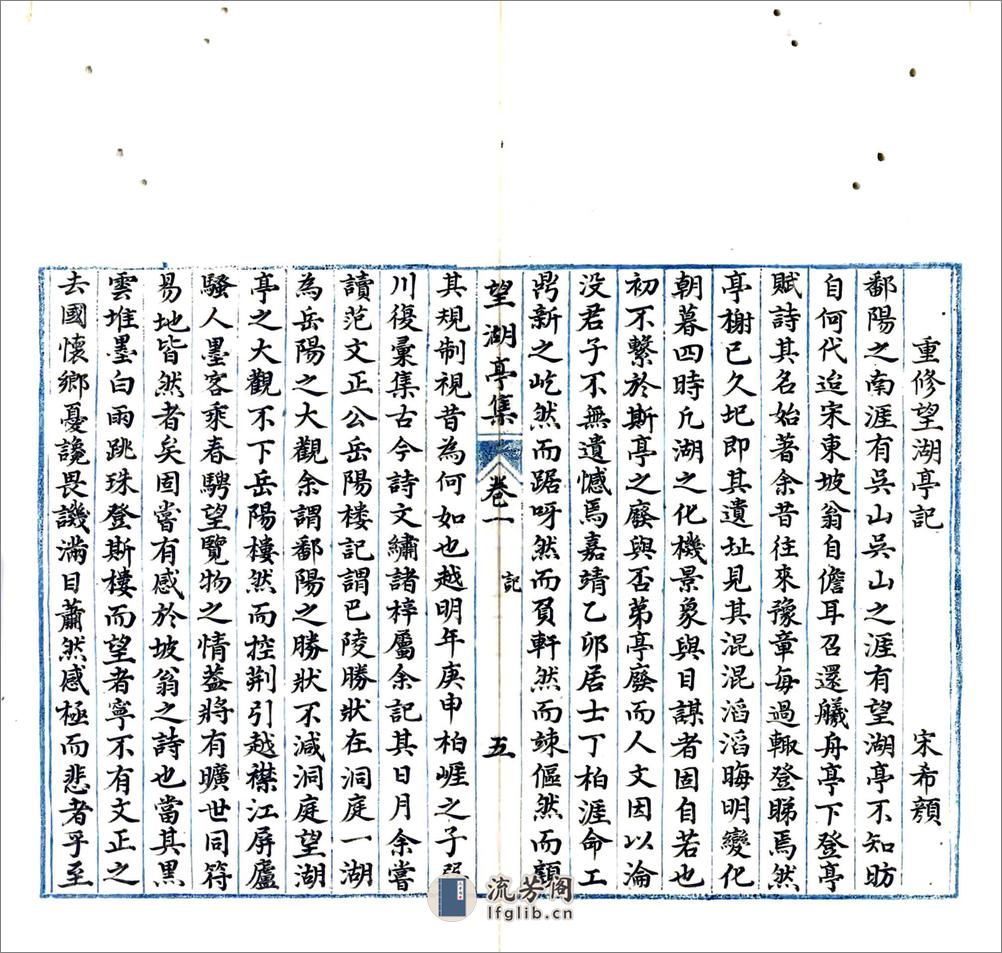 重修望湖亭記 宋希顏
鄱陽之南涯有吳山吳山之涯有望湖亭不知昉
自何代迨宋東坡翁自儋耳召還艤舟亭下登亭
賦詩其名始著余昔往來豫章每過輒登睇焉然
亭榭已久圯即其遺址見其混混滔滔晦明變化
朝暮四時凢湖之化機景象與目謀者固自若也
初不繫於斯亭之廢與否苐亭廢而人文因以淪
没君子不無遺憾焉嘉靖乙卯居士丁柏涯命工
鼎新之屹然而踞呀然而負軒然而竦傴然而
望湖亭集 卷一 記 五
其規制視昔為何如也越明年庚申柏崕之子
川復彙集古今詩文繡諸梓屬余記其日月余嘗
讀范文正公岳陽楼記謂巴陵勝狀在洞庭一湖
為岳陽之大觀余謂鄱陽之勝狀不減洞庭望湖
亭之大觀不下岳陽樓然而控荆引越襟江屏廬
騷人墨客乘春騁望覽物之情葢將有曠世同符
易地皆然者矣固嘗有感於坡翁之詩也當其黑
雲堆墨白雨跳珠登斯樓而望者寧不有文正之
去國懷鄉憂讒畏譏滿目蕭然感極而悲者乎至
流芳阁
lfglib.cn